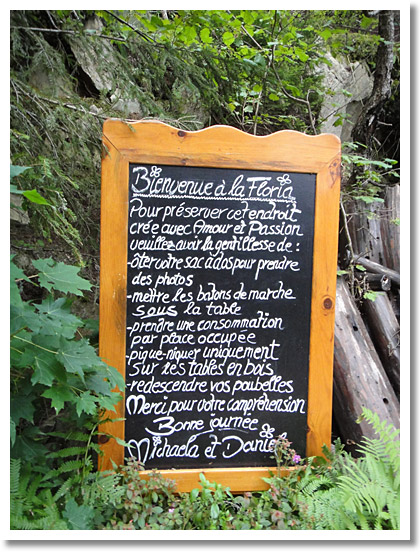 Bienvenue à la Floria
Pour préserver cet endroit
crée avec Amour et Passion
veuillez avoir la gentillesse de :
-ôter votre sac àdos pour prendre
des photos
-mettre les batons de marche
sous la table
-prendre une consommation
par place occupée
-pique-niquer uniquement
sur les tables en bois
-redescendre vos poubelles
Merci pour votre compréhension
Bonne journée
Michaela et Dante